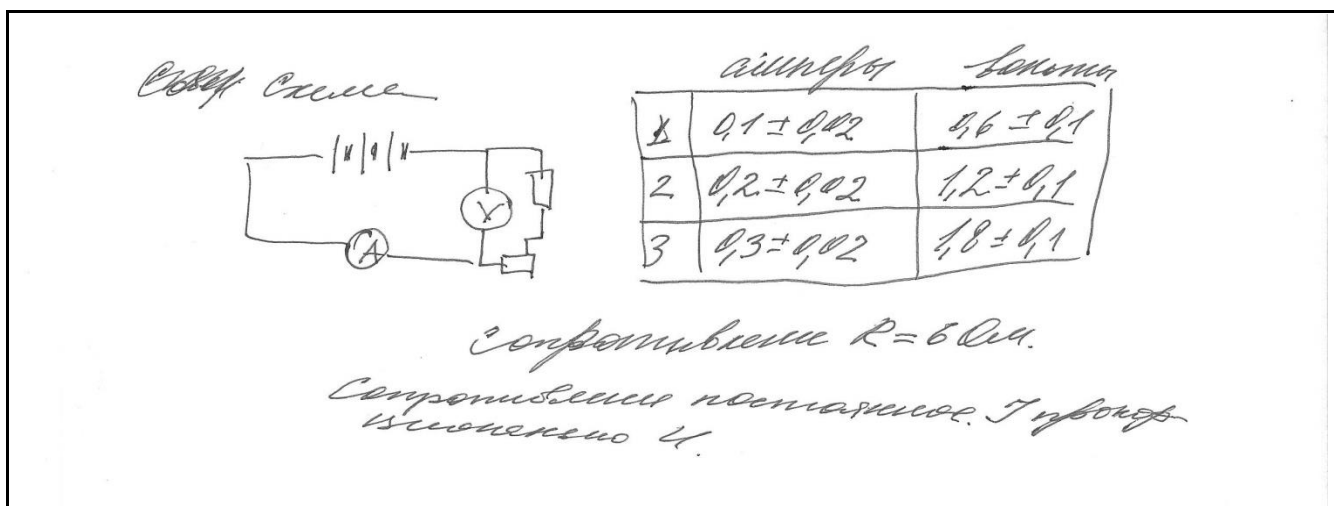 Схема
амперы вольты
1 0,1 ± 0,02 0,6 ± 0,1
2 0,2 ± 0,02 1,2 ± 0,1
3 0,3 ± 0,02 1,8 ± 0,1
V
A
Сопротивление R = 6 Ом.
Сопротивление постоянное. I пропор-
ционально U.